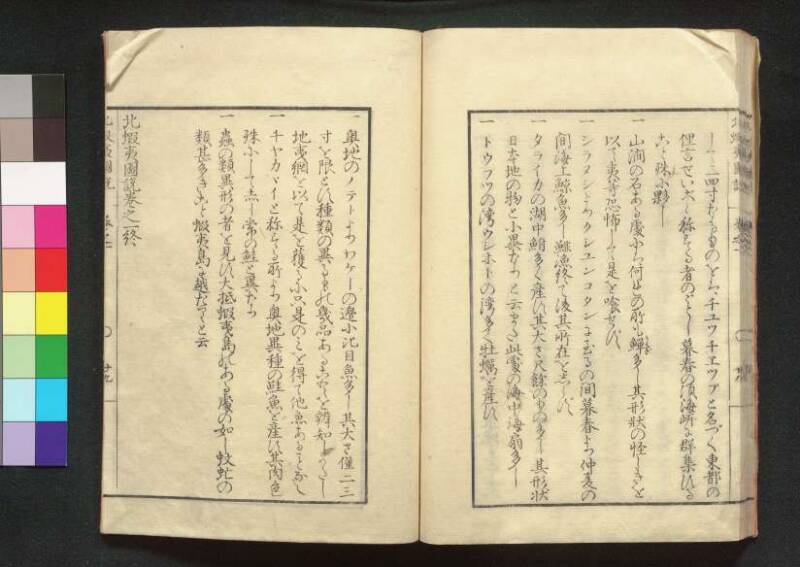 して三四寸なるものをチエツフチエツプと名づく東都の
俚言せい大と称する者のごとし暮春の頃海岸に群集する
こと殊に夥し
一 山澗の石ある處には何れの所も鱓多し其形状の怪しきを
以て夷等恐怖して是を喰せず
一 シラヌシよりクシユンコタンに至るの間暮春より仲夏の
間海上鯨魚多し鯡漁終て後其所在を志らず
一 タライカの湖中鮹多く産す其大さ尺餘のもの多し其形状
日本地の物と小異なりと云また此處の海中海扇多し
一 トウフツの湾ウシホトの湾多く牡蠣を産す
一 奥地のノテトよりワゲーの邊小比目魚多し其大さ僅二三
寸を限とす種類の異るもの幾品あることを辨知しがたし
地曳網を以て是を獲るに只是のミを得て他魚あることなし
一 チヤカバイと称する所より奥地異種の鮭魚を産す其肉色
殊に して常の鮭と異なり
一 蟲の類異形の者を見ず大抵蝦夷島にある處の如し蚊虻の
類甚多きこと蝦夷島に越たりと云
北蝦夷圖説巻之一終